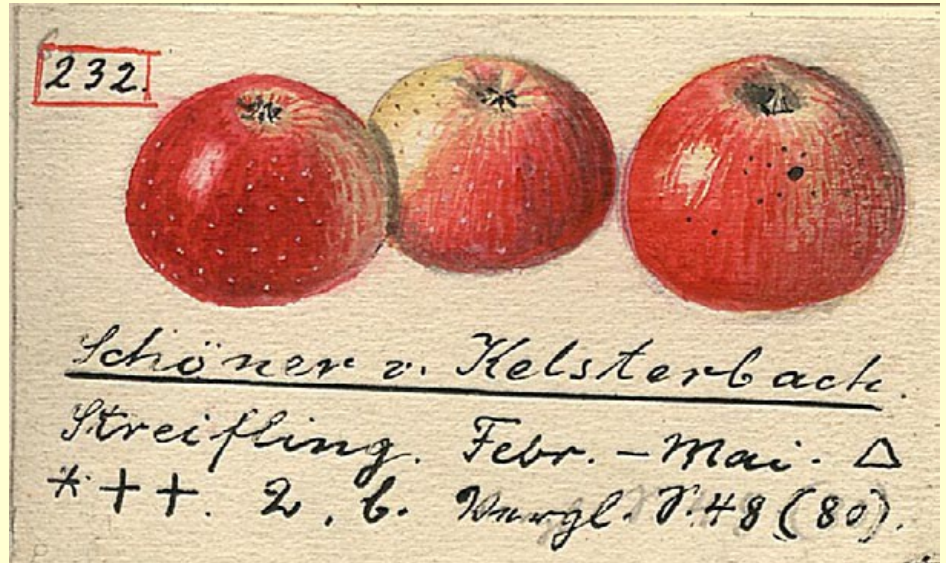 232.
Schöner v. Kelsterbach.
Streifling. Febr. – Mai. Δ
*++. 2, b. Vergl. S. 48 (80).